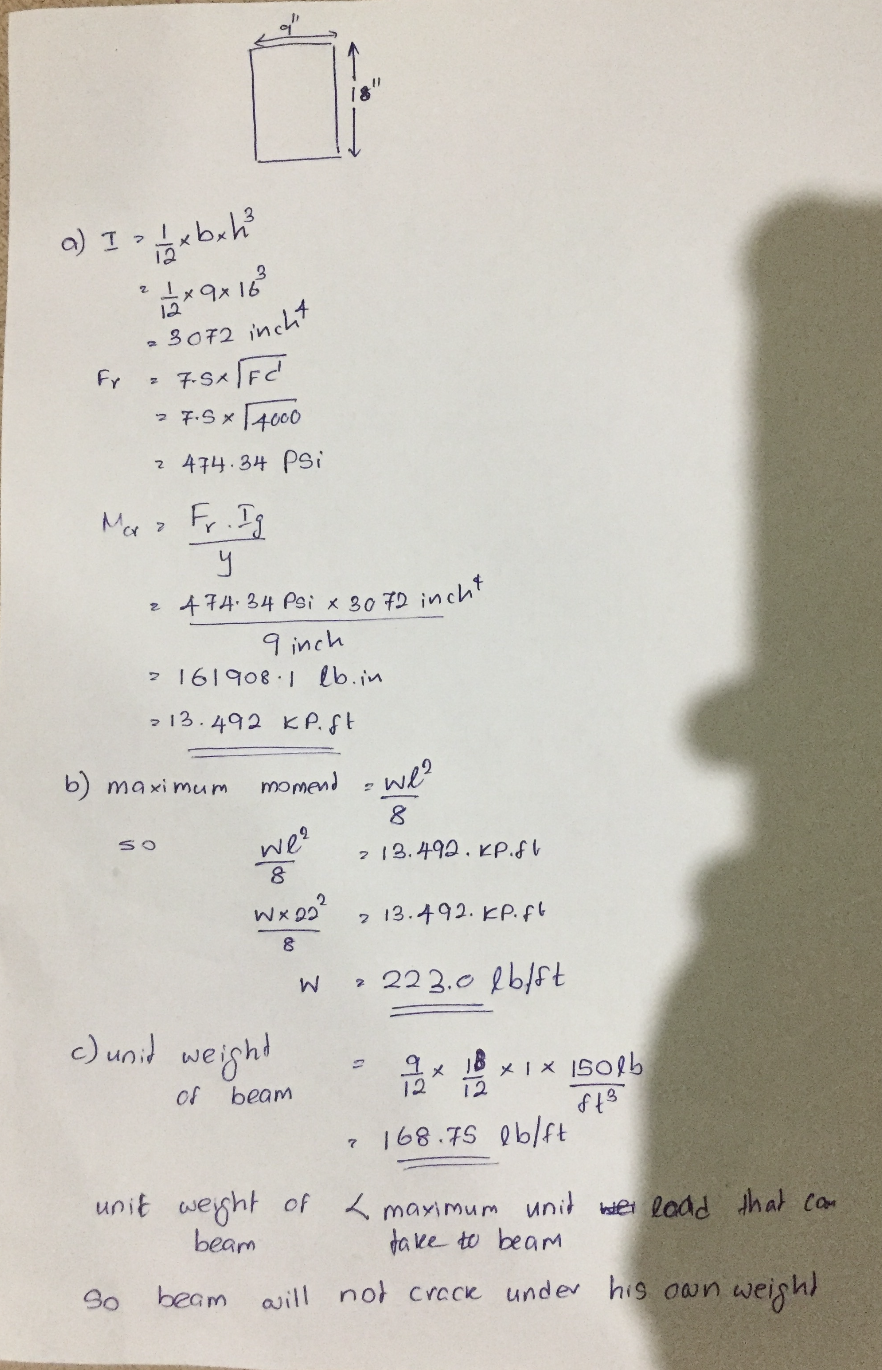 9"
18"
a) I = 1/12 × b × h³
= 1/12 × 9 × 16³
= 3072 inch⁴
Fr = 7.5 × √Fc'
= 7.5 × √4000
= 474.34 Psi
Mcr = Fr . Ig / y
= 474.34 Psi × 3072 inch⁴ / 9 inch
= 161908.1 lb.in
= 13.492 KP.ft
b) maximum momend = Wl²/8
so Wl²/8 = 13.492. KP.ft
W×22²/8 = 13.492. KP.ft
W = 223.0 lb/ft
c) unit weight of beam = 9/12 × 18/12 × 1 × 150lb/ft³
= 168.75 lb/ft
unit weight of beam < maximum unit load that can take to beam
So beam will not crack under his own weight